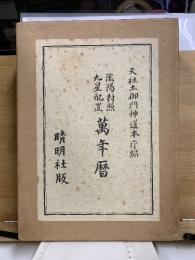 天社土御門神道本庁編
陰陽対照
九星配置
萬年暦
晴明社版